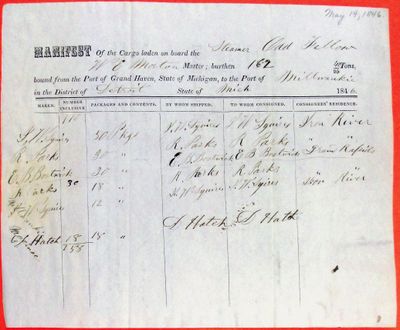 May 14, 1846
MANIFEST Of the Cargo laden on board the Steamer Odd Fellow
W. E. Morton Master; burthen 162 Tons,
bound from the Port of Grand Haven, State of Michigan, to the Port of Milwaukie
in the District of Detroit State of Mich 1846.
MARKS. NUMBER INCLUSIVE PACKAGES AND CONTENTS. BY WHOM SHIPPED. TO WHOM CONSIGNED. CONSIGNEES' RESIDENCE.
S. W. Squires 30 Pkgs S. W. Squires S. W. Squires Iron River
R. Parks 30 " R. Parks R. Parks
E. B. Bostwick 30 " E. B. Bostwick E. B. Bostwick Grand Rapids
R. Parks 30 18 " R. Parks R. Parks
S. W. Squires 12 " S. W. Squires S. W. Squires River
Hatch 18 18 " S Hatch S Hatch